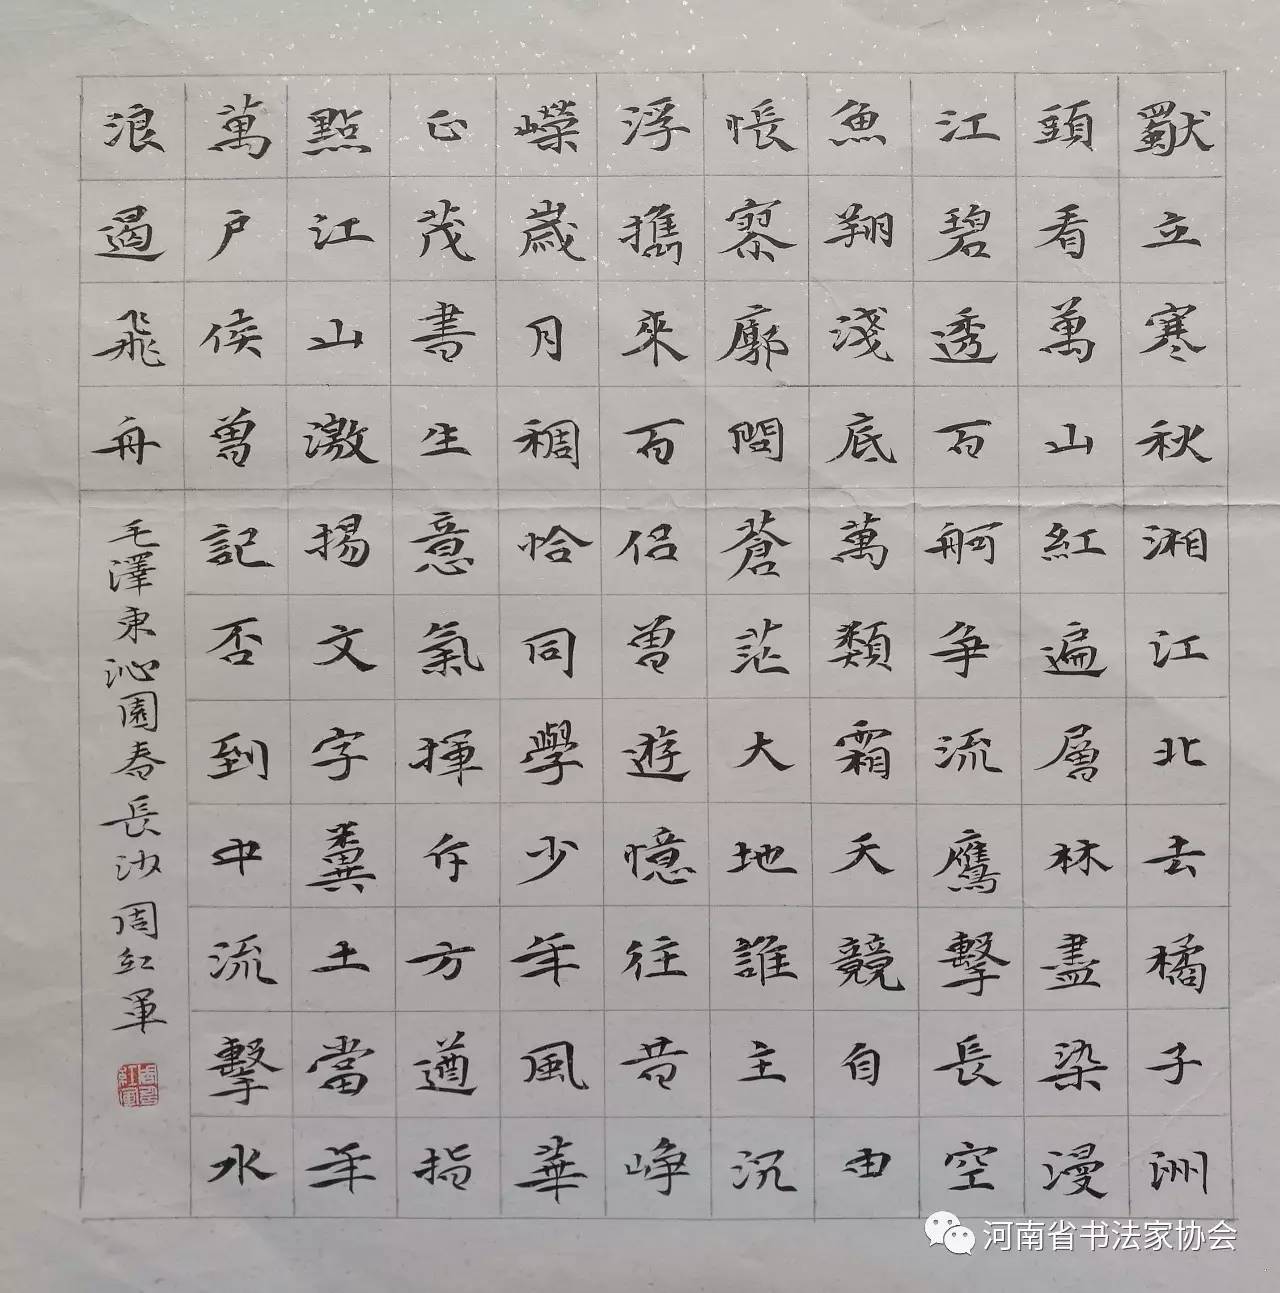 獨立寒秋湘江北去橘子洲
頭看萬山紅遍層林盡染漫
江碧透百舸争流鷹擊長空
魚翔淺底萬類霜天競自由
悵寥廓問蒼茫大地誰主沉
浮攜來百侶曾遊憶往昔崢
嶸歲月稠恰同學少年風華
正茂書生意氣揮斥方遒指
點江山激揚文字糞土當年
萬户侯曾記否到中流擊水
浪遏飛舟
毛澤東沁園春長沙周紅軍
河南省书法家协会